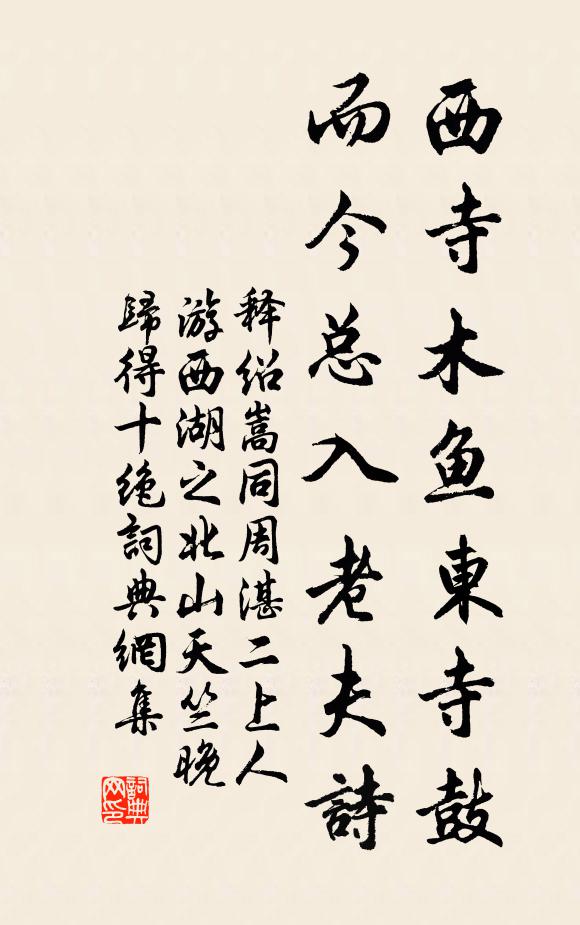 西寺木鱼東寺鼓
而今总入老夫詩
释绍嵩同周湛二上人
游西湖之北山天竺晚
歸得十绝詞典網集
詞典网印